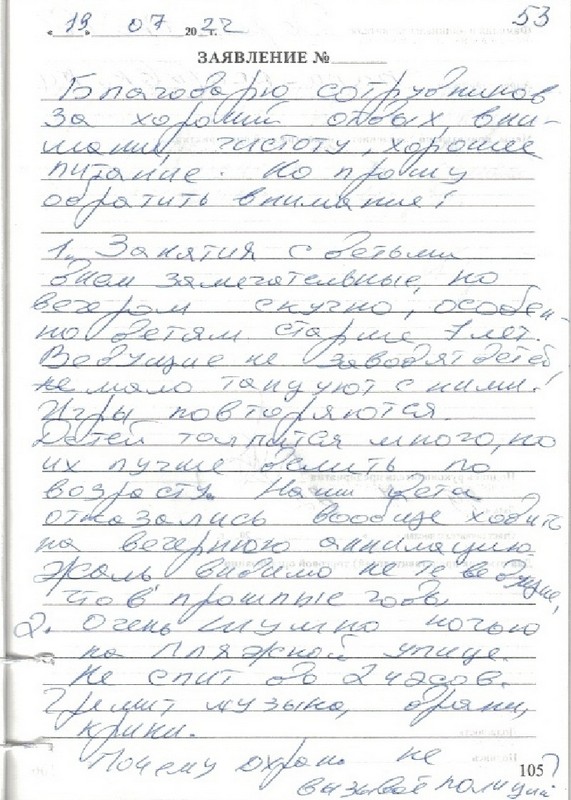 53
" 19 " 07 2022 г.
ЗАЯВЛЕНИЕ №
Благодарю сотрудников
за хороший отдых, вни-
мание, чистоту, хорошее
питание. Но прошу
обратить внимание!
1. Занятия с детьми
днем замечательные, но
вечером скучно, особен-
но детям старше 7 лет.
Ведущие не заводят детей
мало танцуют с ними!
Игры повторяются.
Детей толпится много, но
их лучше делить по
возрасту. Наши дети
отказались вообще ходить
на вечернюю анимацию.
Жаль видимо не те ведущие,
что в прошлые годы
2. Очень шумно ночью
на пляжной улице.
Не спит до 2 часов.
Гремит музыка, драки,
крики.
Почему охрана не
105
вызывае полиции?